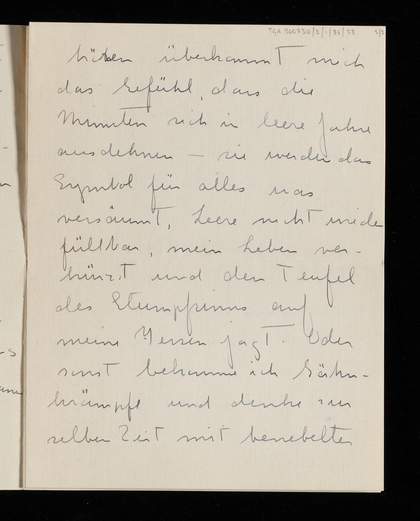 hören überkommt mich
das Gefühl, dass die
Minuten sich in leere Jahre
ausdehnen – sie werden das
Symbol für alles was
versäumt, leere nicht wieder
füllbar, mein Leben ver-
kürzt und den Teufel
des Stumpfsinns auf
meine Versen jagt. Oder
sonst bekomme ich Gähn-
krämpfe und denke zur
selben Zeit mit benebelter